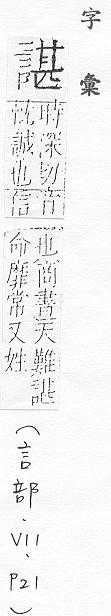 字彙
諶
時深切音
忱誠也信
也商書天難諶
命靡常又姓
(言部、VII、P21)